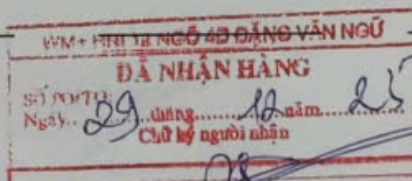 WM+ HNI 12 NGÕ 4D ĐẶNG VĂN NGỮ
ĐÃ NHẬN HÀNG
SỐ PO/TO:
Ngày.. 29 tháng......12 năm 25
Chữ ký người nhận